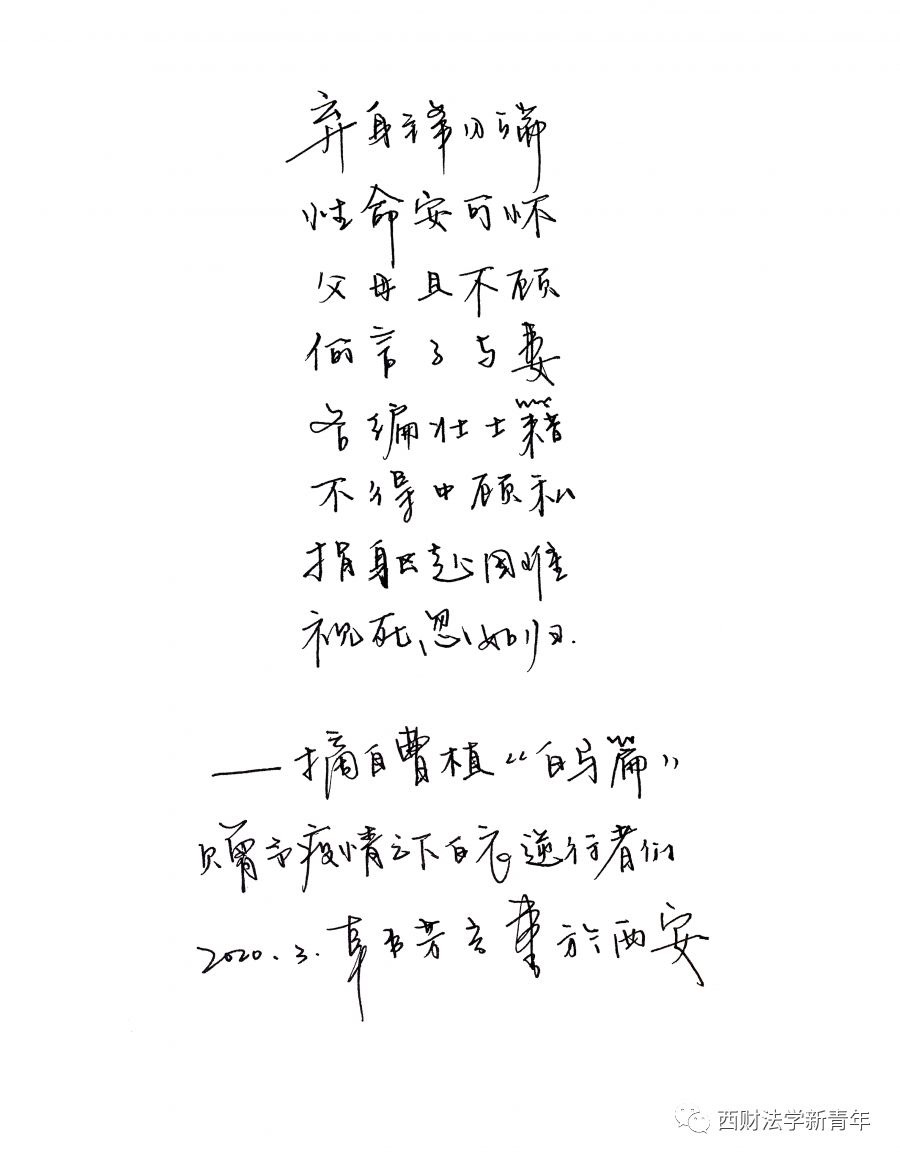 弃身锋刃端
性命安可怀
父母且不顾
何言子与妻
名编壮士籍
不得中顾私
捐躯赴国难
视死忽如归.
——摘自曹植“白马篇”
赠予疫情之下白衣逆行者们
2020.3. 芳 於西安
西财法学新青年